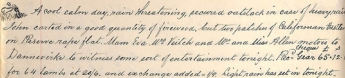 A cool calm day, rain threatening, secured oatstack in case of heavy rain
John carted in a good quantity of firewood, put two patches of Californian thistles
on Reserve rape flat. Mam Eva Mrs Veitch and Mr and Miss Allen motored to
Dannevirke to witness some sort of entertainment tonight. Rec cheque of Sears £65-12-
for 64 lambs at 20/6, and exchange added -1/4. Light rain has set in tonight.